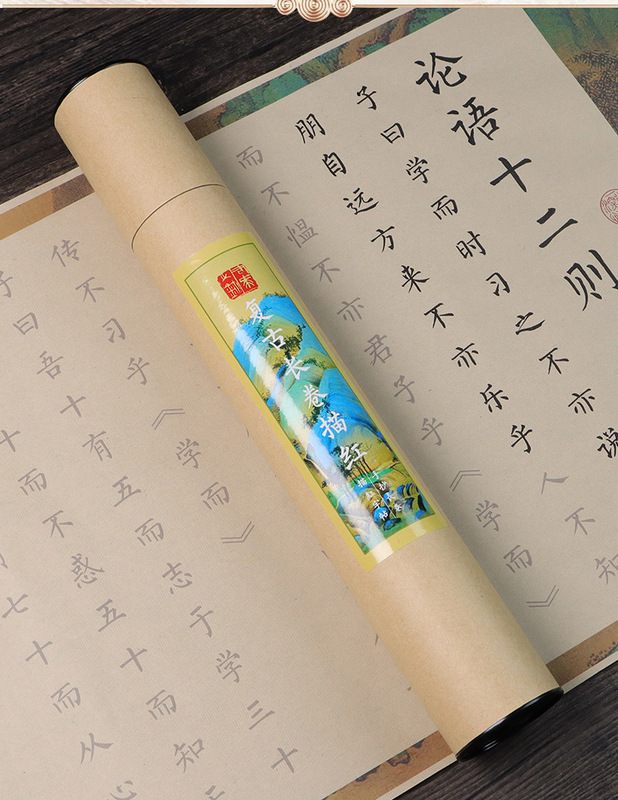 论语十二则
子曰学而时习之不亦说
朋自远方来不亦乐乎人不知
而不愠不亦君子乎《学而》
传不习乎《学而》
子曰吾十有五而志于学三十
十而不惑五十而知
七十而从心
复古长卷描红